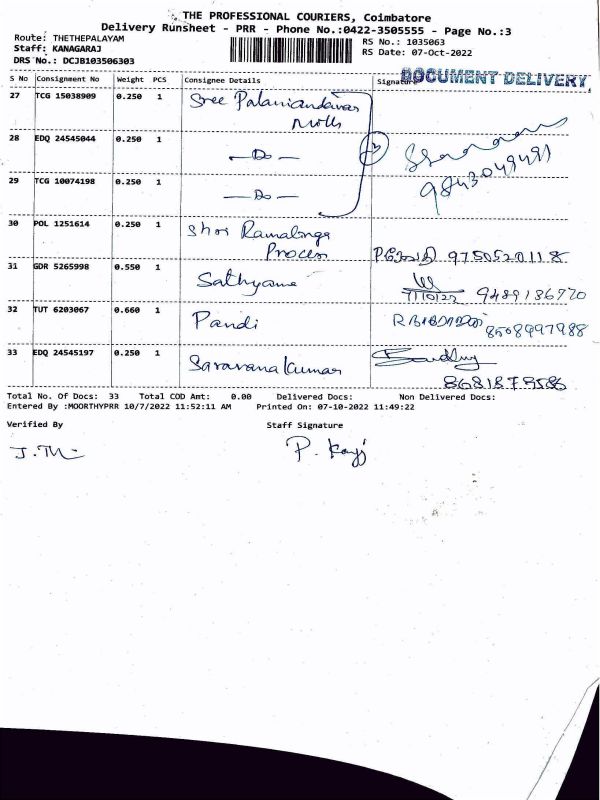 THE PROFESSIONAL COURIERS, Coimbatore
Delivery Runsheet - PRR - Phone No.:0422-3505555 - Page No.:3
Route: THETHEPALAYAM RS No.: 1035063
Staff: KANAGARAJ RS Date: 07-Oct-2022
DRS No.: DCJB103506303
S No Consignment No Weight PCS Consignee Details Signature DOCUMENT DELIVERY
27 TCG 15038909 0.250 1 Sree Palaniandavar
Mills
28 EDQ 24545044 0.250 1 — Do —
9843049491
29 TCG 10074198 0.250 1 — Do —
30 POL 1251614 0.250 1 Shri Ramalinga
Process 9750520118
31 GDR 5265998 0.550 1 Sathyama
7/10/22 9489136770
32 TUT 6203067 0.660 1 Pandi 8508997988
33 EDQ 24545197 0.250 1 Saravanakumar
Total No. Of Docs: 33 Total COD Amt: 0.00 Delivered Docs: Non Delivered Docs:
Entered By :MOORTHYPRR 10/7/2022 11:52:11 AM Printed On: 07-10-2022 11:49:22
Verified By Staff Signature